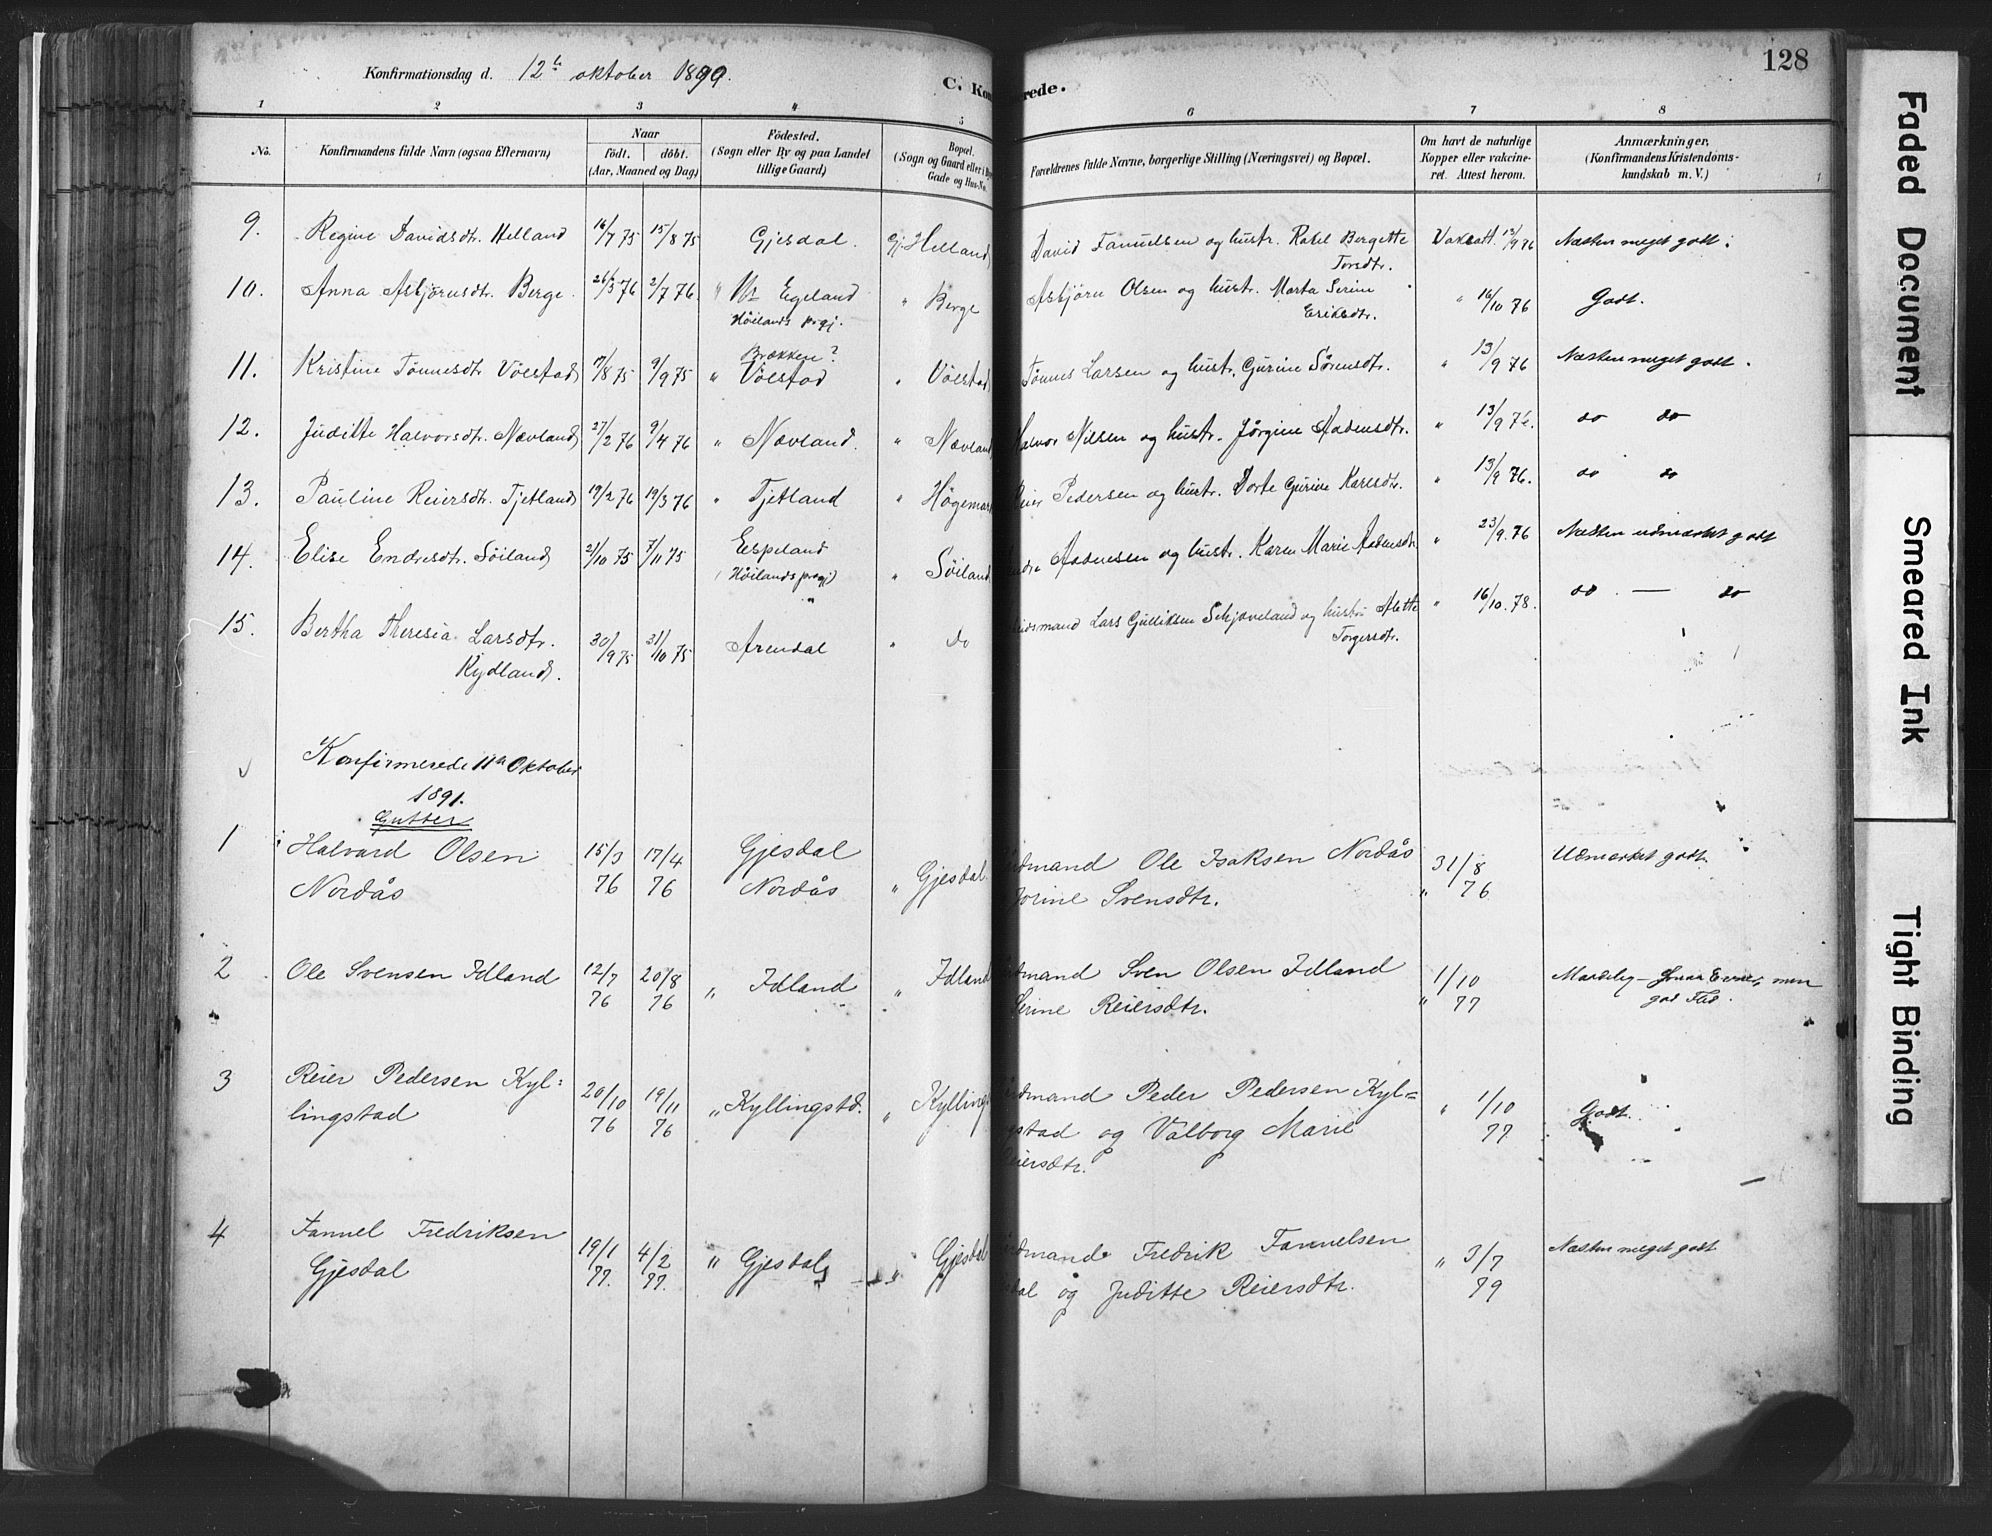 Konfirmationsdag d. 12te oktober 1890.
C. Kon rede.
128
1 2 3 4 5 6 7 8
No. Konfirmandens fulde Navn (ogsaa Efternavn) Naar födt. döbt. (Aar, Maaned og Dag) Födested. (Sogn eller By og paa Landet tillige Gaard) Bopæl. (Sogn og Gaard eller i By Gade og Hus-No. Forældrenes fulde Navne, borgerlige Stilling (Næringsvei) og Bopæl. Om havt de naturlige Kopper eller vakcineret. Attest herom. Anmærkninger. (Konfirmandens Kristendomskundskab m. V.)
9. Regine Davidsdtr. Helland 16/7 75 15/8 75 Gjesdal. Gj. Helland David Fanuelsen og hustr. Rakel Bergette Torsdtr. Vakcatt. 13/9 76 Næsten meget godt.
10. Anna Asbjörnsdtr. Berge. 26/3 76 2/7 76 " Egeland Höilands prgj. " Berge Asbjörn Olsen og hustr. Marta Serine Eriksdtr. " 16/10 76 Godt.
11. Kristine Tönnesdtr Völstad 17/8 75 9/9 75 " Brækken? Völstad " Völstad Tönnes Larsen og hustr. Gurine Sörensdtr. " 13/9 76 Næsten meget godt.
12. Juditte Halvorsdtr. Nævland 27/2 76 9/4 76 " Nævland. " Nævland Halvor Nilsen og hustr. Jörgine Aadensdtr. " 13/9 76. do do
13. Pauline Reiersdtr. Tjetland 19/2 76 19/3 76 " Tjetland " Högemar Reier Pedersen og hustr. Dorte Gurine Karlsdtr. " 13/9 76. do do
14. Elise Endresdtr. Söiland 21/10 75 7/11 75 Espeland (Höilands prgj) " Söiland Endre Aadnesen og hustr. Karen Marie Aadnesdtr " 23/9. 76 Næsten udmærket godt
15. Bertha Theresia Larsdtr. Kydland. 30/9 75 31/10 75 " Arendal " do Lars Gulliksen Schjæveland og hustru Alette Torgersdtr. " 16/10. 78. do — do
Konfirmerede 11te Oktober
1891.
Gutter
1 Halvard Olsen Nordås 15/3 76 17/4 76 Gjesdal Nordås " Gjesdal. rdmand Ole Isaksen Nordås Jorine Svensdtr. " 31/8 76 Udmærket godt.
2 Ole Svensen Idland 12/7 76 20/8 76 " Idland " Idland rdmand Sven Olsen Idland Serine Reiersdtr. " 1/10 77 Maadelig — smaa Evner, men god Flid.
3 Reier Pedersen Kyl=lingstad 20/10 76 19/11 76 " Kyllingstd. " Kylling rdmand Peder Pedersen Kyl=gstad og Valborg Marie Reiersdtr. " 1/10 77 Godt.
4 Fanuel Fredriksen Gjesdal 19/1 77. 4/2 77. " Gjesdal " Gjesdal rdmand Fredrik Fanuelsen dal og Juditte Reiersdtr. " 3/7 79 Næsten meget godt
Faded Document
Smeared Ink
Tight Binding